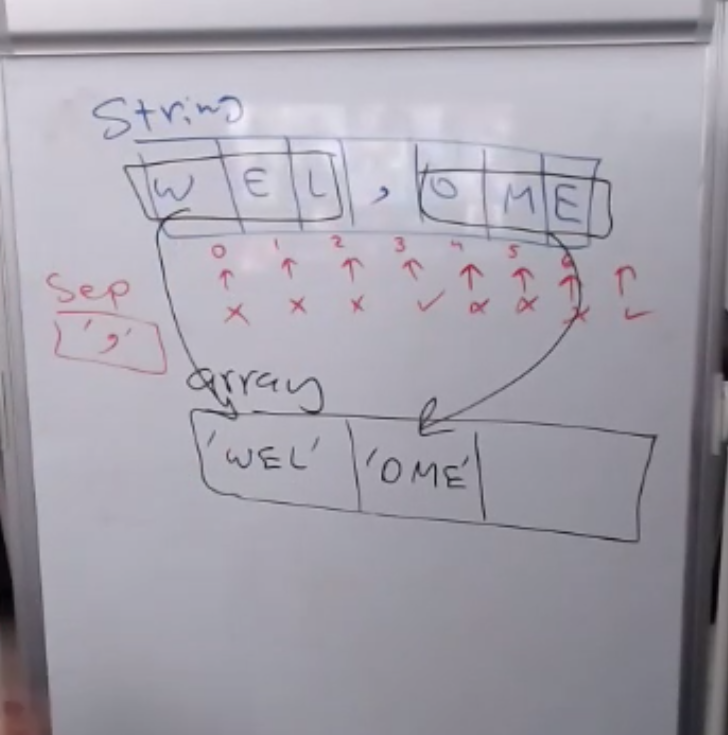 String
W E L , O M E
0 1 2 3 4 5 6
↑ ↑ ↑ ↑ ↑ ↑ ↑ ↑
Sep
x x x ✓ x x x ✓
','
array
'WEL' 'OME'